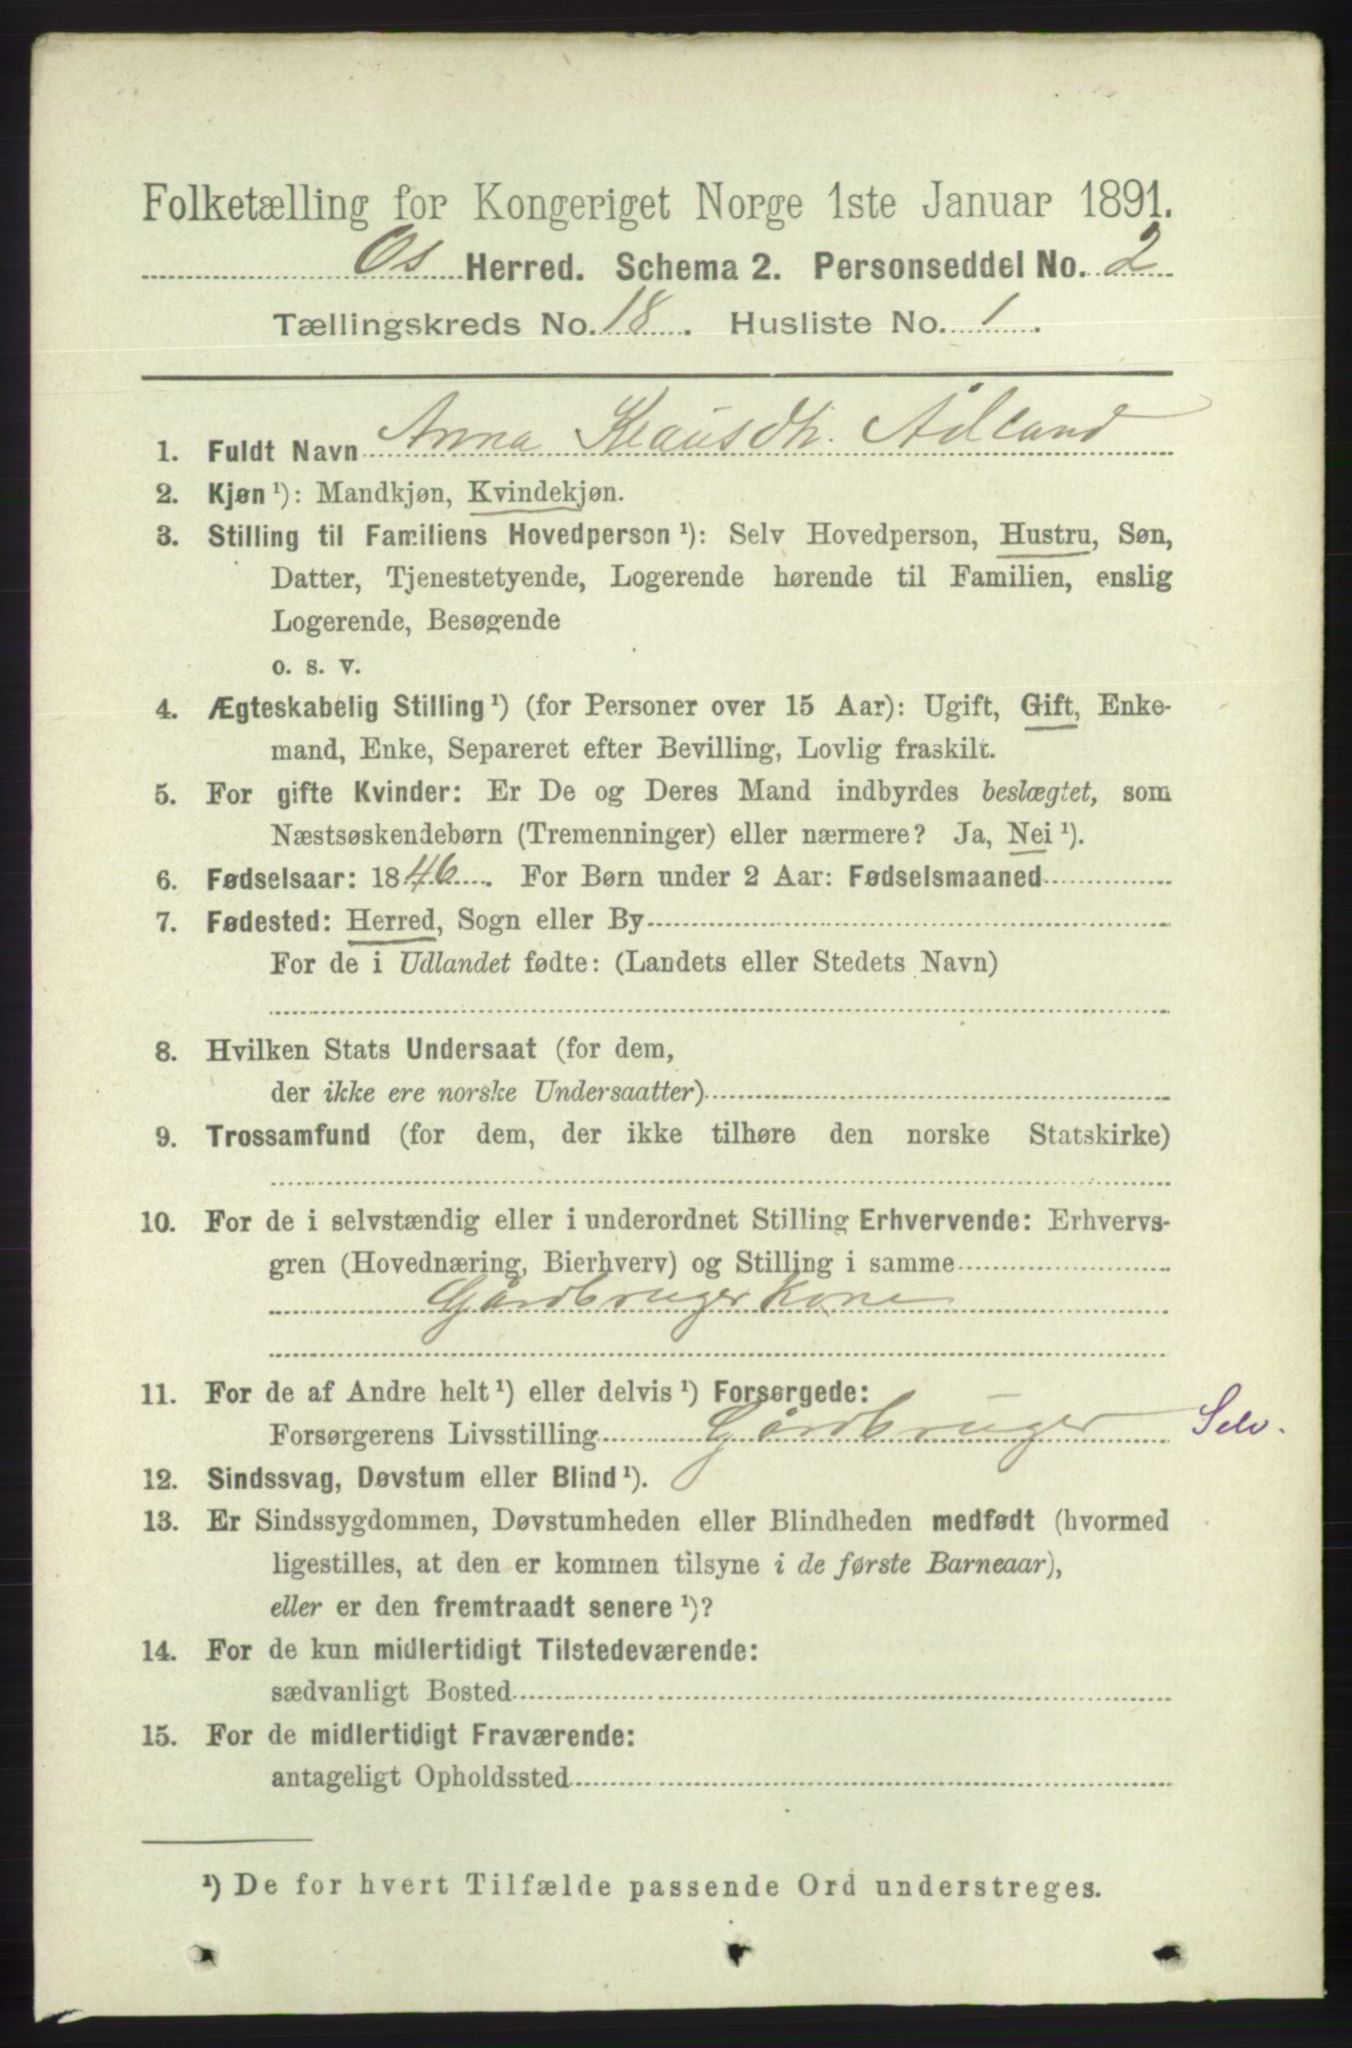 Folketælling for Kongeriget Norge 1ste Januar 1891.
Os Herred. Schema 2. Personseddel No. 2
Tællingskreds No. 18. Husliste No. 1.
1. Fuldt Navn Anna Klausdtr. Ådland
2. Kjøn ¹): Mandkjøn, Kvindekjøn.
3. Stilling til Familiens Hovedperson ¹): Selv Hovedperson, Hustru, Søn,
Datter, Tjenestetyende, Logerende hørende til Familien, enslig
Logerende, Besøgende
o. s. v.
4. Ægteskabelig Stilling ¹) (for Personer over 15 Aar): Ugift, Gift, Enke-
mand, Enke, Separeret efter Bevilling, Lovlig fraskilt.
5. For gifte Kvinder: Er De og Deres Mand indbyrdes beslægtet, som
Næstsøskendebørn (Tremenninger) eller nærmere? Ja, Nei ¹).
6. Fødselsaar: 1846. For Børn under 2 Aar: Fødselsmaaned
7. Fødested: Herred, Sogn eller By
For de i Udlandet fødte: (Landets eller Stedets Navn)
8. Hvilken Stats Undersaat (for dem,
der ikke ere norske Undersaatter)
9. Trossamfund (for dem, der ikke tilhøre den norske Statskirke)
10. For de i selvstændig eller i underordnet Stilling Erhvervende: Erhvervs-
gren (Hovednæring, Bierhverv) og Stilling i samme
Gårdbrugerkone
11. For de af Andre helt ¹) eller delvis ¹) Forsørgede:
Forsørgerens Livsstilling Gårdbruger Selv.
12. Sindssvag, Døvstum eller Blind ¹).
13. Er Sindssygdommen, Døvstumheden eller Blindheden medfødt (hvormed
ligestilles, at den er kommen tilsyne i de første Barneaar),
eller er den fremtraadt senere ¹)?
14. For de kun midlertidigt Tilstedeværende:
sædvanligt Bosted
15. For de midlertidigt Fraværende:
antageligt Opholdssted
¹) De for hvert Tilfælde passende Ord understreges.